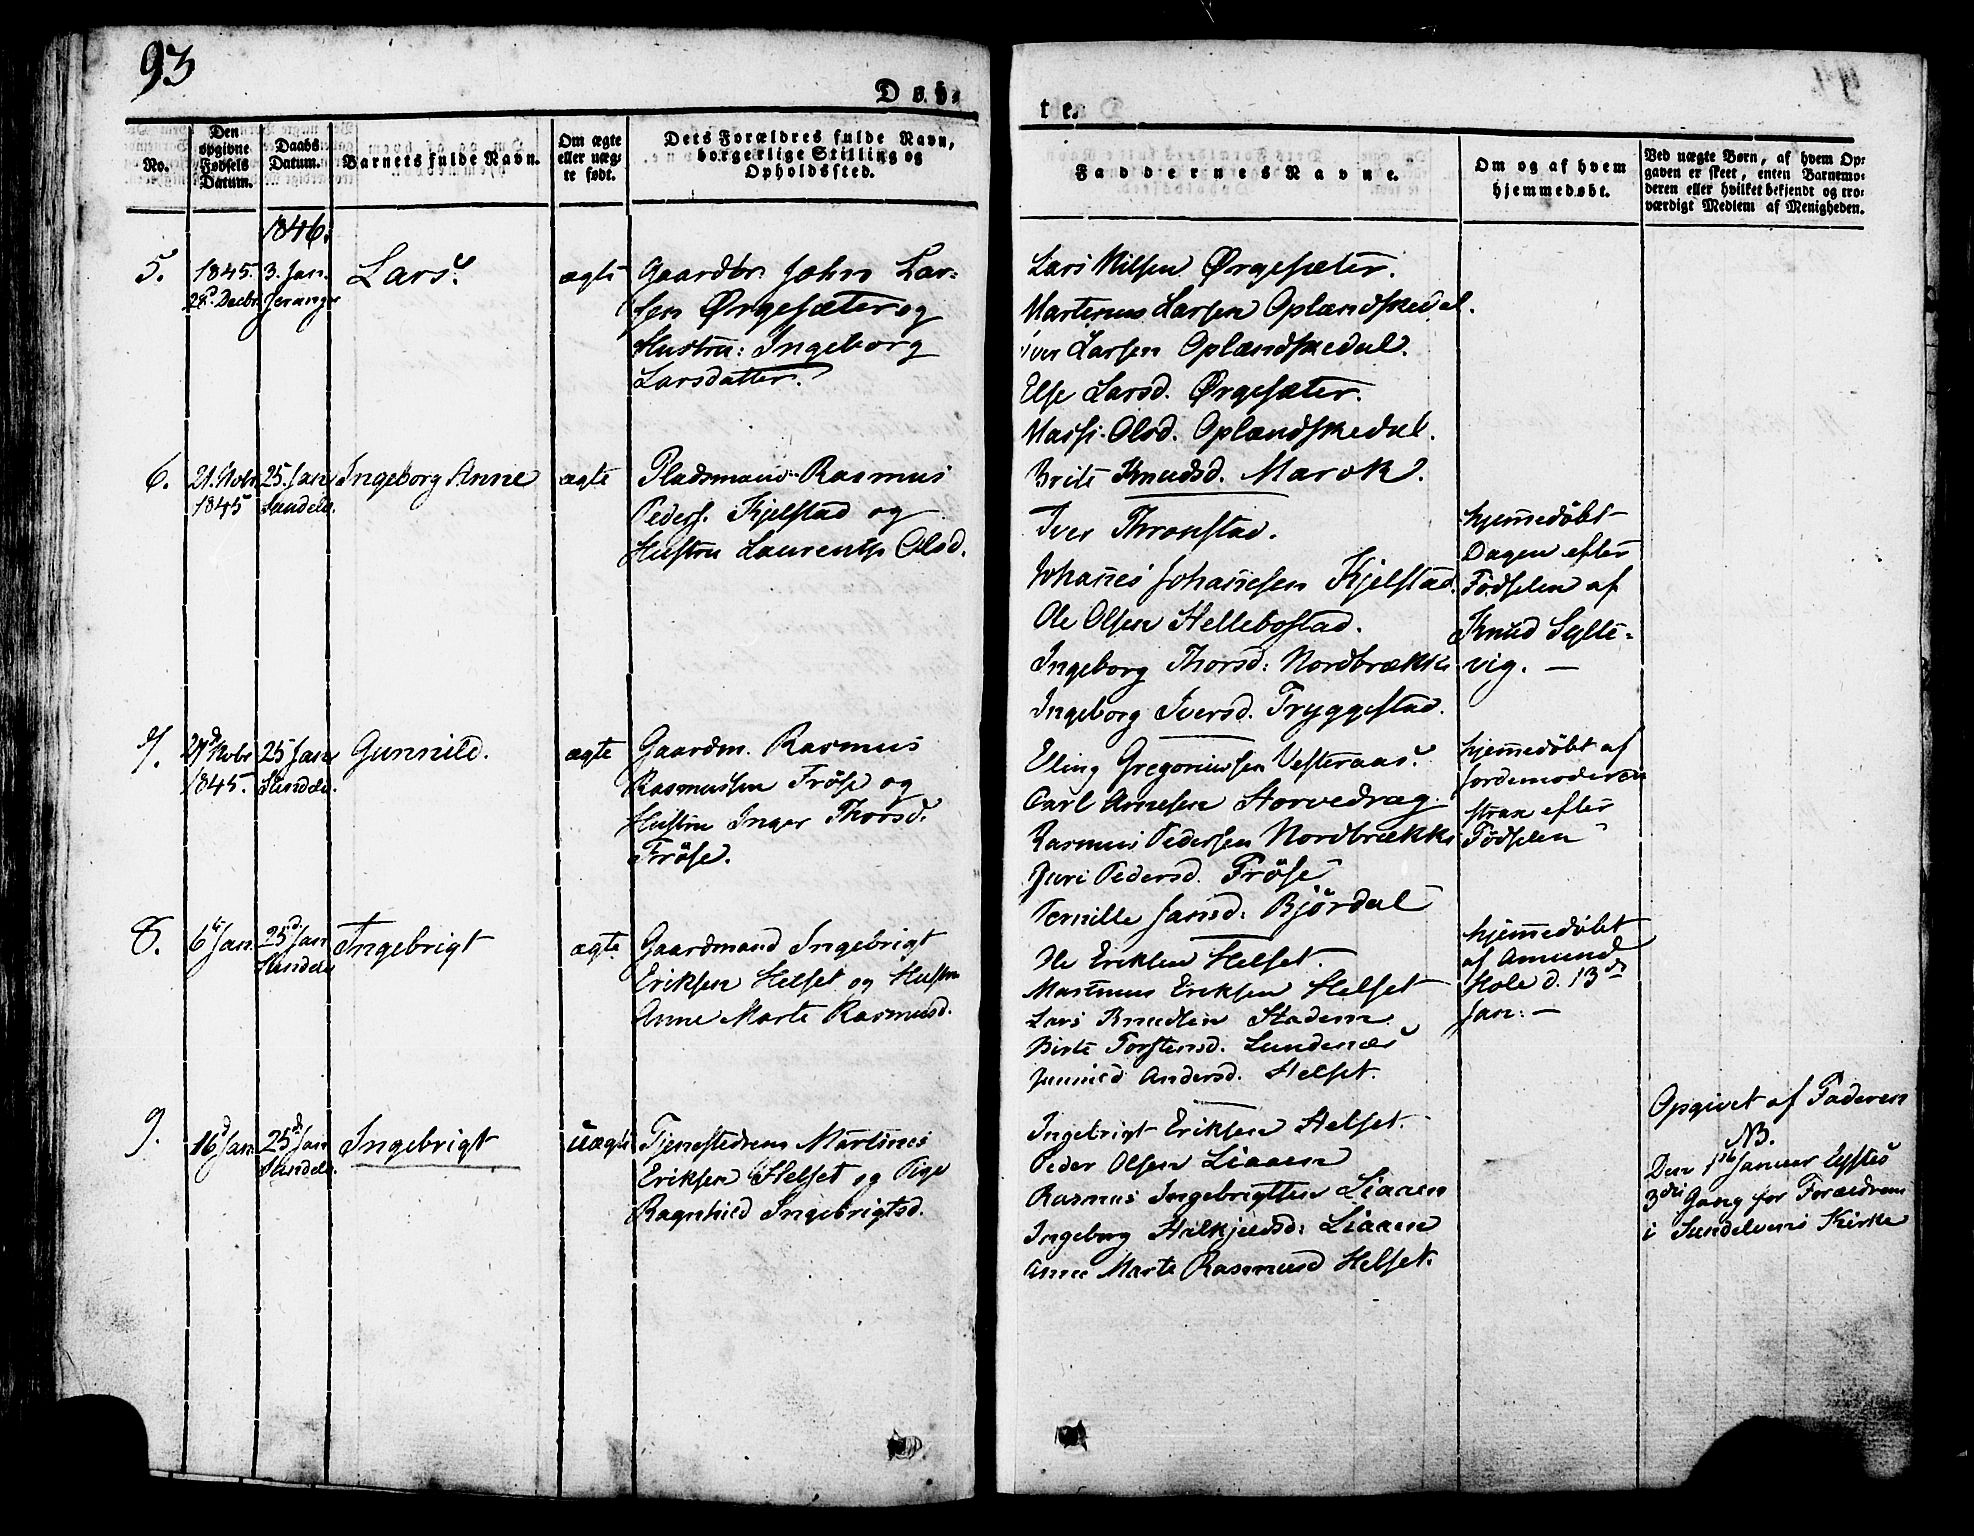 93
Døb-
te.
No.
Den opgivne Fødsels Datum.
Daabs Datum.
Barnets fulde Navn.
Om ægte eller uæg- te født.
Dets Forældres fulde Navn, borgerlige Stilling og Opholdssted.
Faddernes Navne.
Om og af hvem hjemmedøbt.
Ved uægte Børn, af hvem Op- gaven er skeet, enten Barnemo- deren eller hvilket bekjendt og tro- værdigt Medlem af Menigheden.
1846.
5.
1845.
28d Decbr
3. Jan.
Lars.
ægte
Gaardbr. John Lar-
sen Ørgesæter og
Hustru: Ingeborg
Larsdatter.
Lars Nilsen Ørgesæter.
Martinus Larsen Oplændskedal.
Iver Larsen Oplændskedal.
Else Larsd. Ørgesæter.
Massi Olsd. Oplændskedal.
6.
21. Nobr
1845
25. Jan
Sundelv.
Ingeborg Anne
ægte
Pladsmand Rasmus
Peders. Kjelstad og
Hustru Laurentse Olsd.
Brite Knudsd. Marok.
Iver Thronstad.
Johannes Johannesen Kjelstad.
Ole Olsen Hellebostad.
Ingeborg Thorsd: Nordbrække
Ingeborg Iversd. Tryggestad.
hjemmedøbt
Dagen efter
Fødselen af
Knud Sylte-
vig. —
7.
Nobr
1845.
25 Jan
Sundelv.
Gunnild.
ægte
Gaardm. Rasmus
Rasmussen Frøse og
Hustru Inger Thorsd.
Frøse.
Eling Gregoriussen Vesteraas.
Carl Arnesen Storvedrag
Rasmus Pedersen Nordbrække
Guri Pedersd. Frøse
Pernille Jansd: Bjørdal
hjemmedøbt af
Jordemoderen
strax efter
Fødselen
8.
6te Jan.
25d Jan
Sundelv
Ingebrigt
ægte
Gaardmand Ingebrigt
Eriksen Helset og Hustru
Anne Marte Rasmusd.
Ole Eriksen Helset.
Martinus Eriksen Helset
Lars Knudsen Stadem
Birte Torstensd. Lundenæs
Gunnild Andersd. Helset.
hjemmedøbt
af Amund
Hole d. 13de
Jan: —
9.
16d Jan
25d Jan
Sundelv.
Ingebrigt
uægte
Tjenestedreng Martinus
Eriksen Helset og Pige
Ragnhild Ingebrigtsd.
Ingebrigt Eriksen Helset.
Peder Olsen Liaaen
Rasmus Ingebrigtsen Liaaen
Ingeborg Hilkjelsd: Liaaen
Anne Marte Rasmusd Helset.
Opgivet af Faderen
NB.
Den Januar lystes
3die Gang for Forældrene
i Sundelvens Kirke